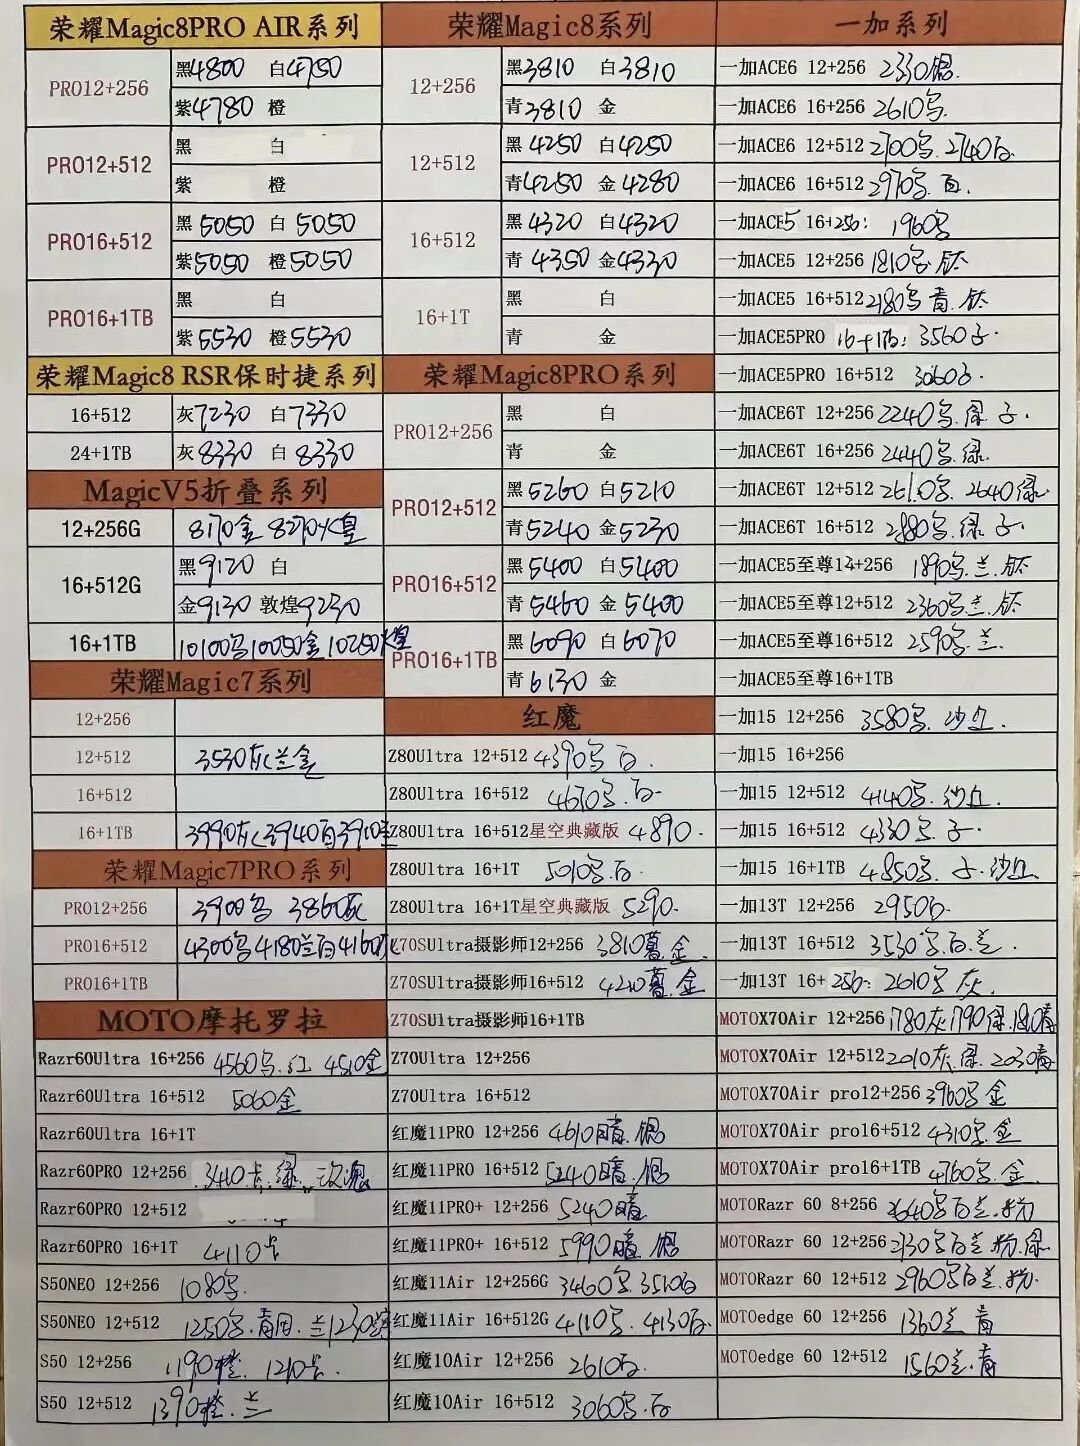 荣耀Magic8PRO AIR系列
PRO12+256
黑4800 白4750
紫4780 橙
PRO12+512
黑 白
紫 橙
PRO16+512
黑5050 白5050
紫5050 橙5050
PRO16+1TB
黑 白
紫5530 橙5530
荣耀Magic8 RSR保时捷系列
16+512 灰7230 白7330
24+1TB 灰8330 白8330
MagicV5折叠系列
12+256G 8170金 8270
16+512G
黑9120 白
金9130 敦煌9230
16+1TB 10100 10050金 10250
荣耀Magic7系列
12+256
12+512 3530灰兰金
16+512
16+1TB 3990灰 3940白 3910金
荣耀Magic7PRO系列
PRO12+256 3900 3860灰
PRO16+512 4300 4180兰白 4160灰
PRO16+1TB
MOTO摩托罗拉
Razr60Ultra 16+256 4560 红 4510金
Razr60Ultra 16+512 5060金
Razr60Ultra 16+1T
Razr60PRO 12+256 3410卡.绿.玫瑰
Razr60PRO 12+512
Razr60PRO 16+1T 4110卡
S50NEO 12+256 1080
S50NEO 12+512 1250 兰1230
S50 12+256 1190橙. 1210卡
S50 12+512 1390橙.兰
荣耀Magic8系列
12+256
黑3810 白3810
青3810 金
12+512
黑4250 白4250
青4250 金4280
16+512
黑4320 白4320
青4350 金4330
16+1T
黑 白
青 金
荣耀Magic8PRO系列
PRO12+256
黑 白
青 金
PRO12+512
黑5260 白5210
青5240 金5230
PRO16+512
黑5400 白5400
青5460 金5400
PRO16+1TB
黑6090 白6070
青6130 金
红魔
Z80Ultra 12+512 4390 白.
Z80Ultra 16+512 4670 白
Z80Ultra 16+512星空典藏版 4890.
Z80Ultra 16+1T 5010 白.
Z80Ultra 16+1T星空典藏版 5290.
Z70SUltra摄影师12+256 3810暮金.
Z70SUltra摄影师16+512 4210暮.金
Z70SUltra摄影师16+1TB
Z70Ultra 12+256
Z70Ultra 16+512
红魔11PRO 12+256 4610暗.银
红魔11PRO 16+512 5240暗.银
红魔11PRO+ 12+256 5240暗
红魔11PRO+ 16+512 5990暗.银
红魔11Air 12+256G 3460 3510白
红魔11Air 16+512G 4110 4130白.
红魔10Air 12+256 2610白.
红魔10Air 16+512 3060 白
一加系列
一加ACE6 12+256 2330银.
一加ACE6 16+256 2610
一加ACE6 12+512 2700 2740白.
一加ACE6 16+512 2970 白.
一加ACE5 16+256: 1960
一加ACE5 12+256 1810 钛
一加ACE5 16+512 2180 青.钛
一加ACE5PRO 16+1TB: 3560
一加ACE5PRO 16+512 3060
一加ACE6T 12+256 2240 绿
一加ACE6T 16+256 2440 绿.
一加ACE6T 12+512 2610 2640绿.
一加ACE6T 16+512 2880 绿
一加ACE5至尊12+256 1890 兰.钛
一加ACE5至尊12+512 2360 兰.钛
一加ACE5至尊16+512 2590 兰.
一加ACE5至尊16+1TB
一加15 12+256 3580 沙丘.
一加15 16+256
一加15 12+512 4140 沙丘.
一加15 16+512 4330
一加15 16+1TB 4850 沙丘
一加13T 12+256 2950白.
一加13T 16+512 3530 白.兰.
一加13T 16+256: 2610 灰.
MOTOX70Air 12+256 1780灰 1790绿
MOTOX70Air 12+512 2010灰.绿. 2030青
MOTOX70Air pro12+256 3960 金
MOTOX70Air pro16+512 4310 金
MOTOX70Air pro16+1TB 4760 金.
MOTORazr 60 8+256 2640 白兰.粉
MOTORazr 60 12+256 2730 白兰.粉.绿
MOTORazr 60 12+512 2960 白兰.粉.
MOTOedge 60 12+256 1360兰 青
MOTOedge 60 12+512 1560兰.青